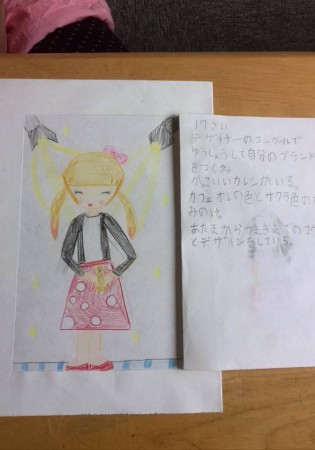 17さい
デザイナーのコンクールで
ゆうしょうして自分のブランド
をつくた。
かっこいいカレシがいる。
カフェオレの色とサクラ色の
みのけ。
あたまからつまさきまでの
とデザインをしている。